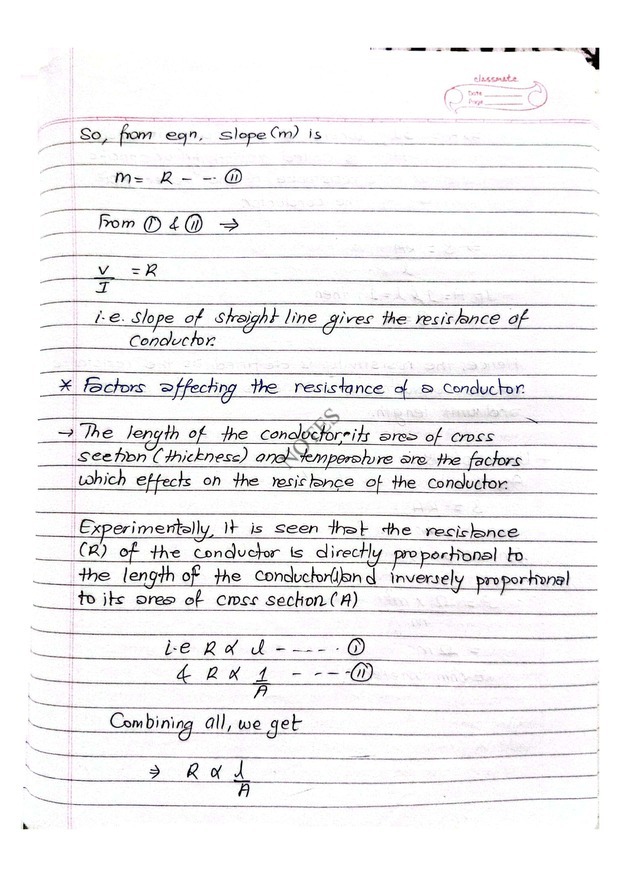 classmate
Date
Page
So, from eqn, slope(m) is
m = R - - - (ii)
From (i) & (ii) ⇒
V/I = R
i.e. slope of straight line gives the resistance of
conductor.
* Factors affecting the resistance of a conductor.
NOTES
→ The length of the conductor, its area of cross
section (thickness) and temperature are the factors
which effects on the resistance of the conductor.
Experimentally, it is seen that the resistance
(R) of the conductor is directly proportional to
the length of the conductor(l) and inversely proportional
to its area of cross section (A)
i.e R ∝ l - - - - - (i)
& R ∝ 1/A - - - - (ii)
Combining all, we get
⇒ R ∝ l/A